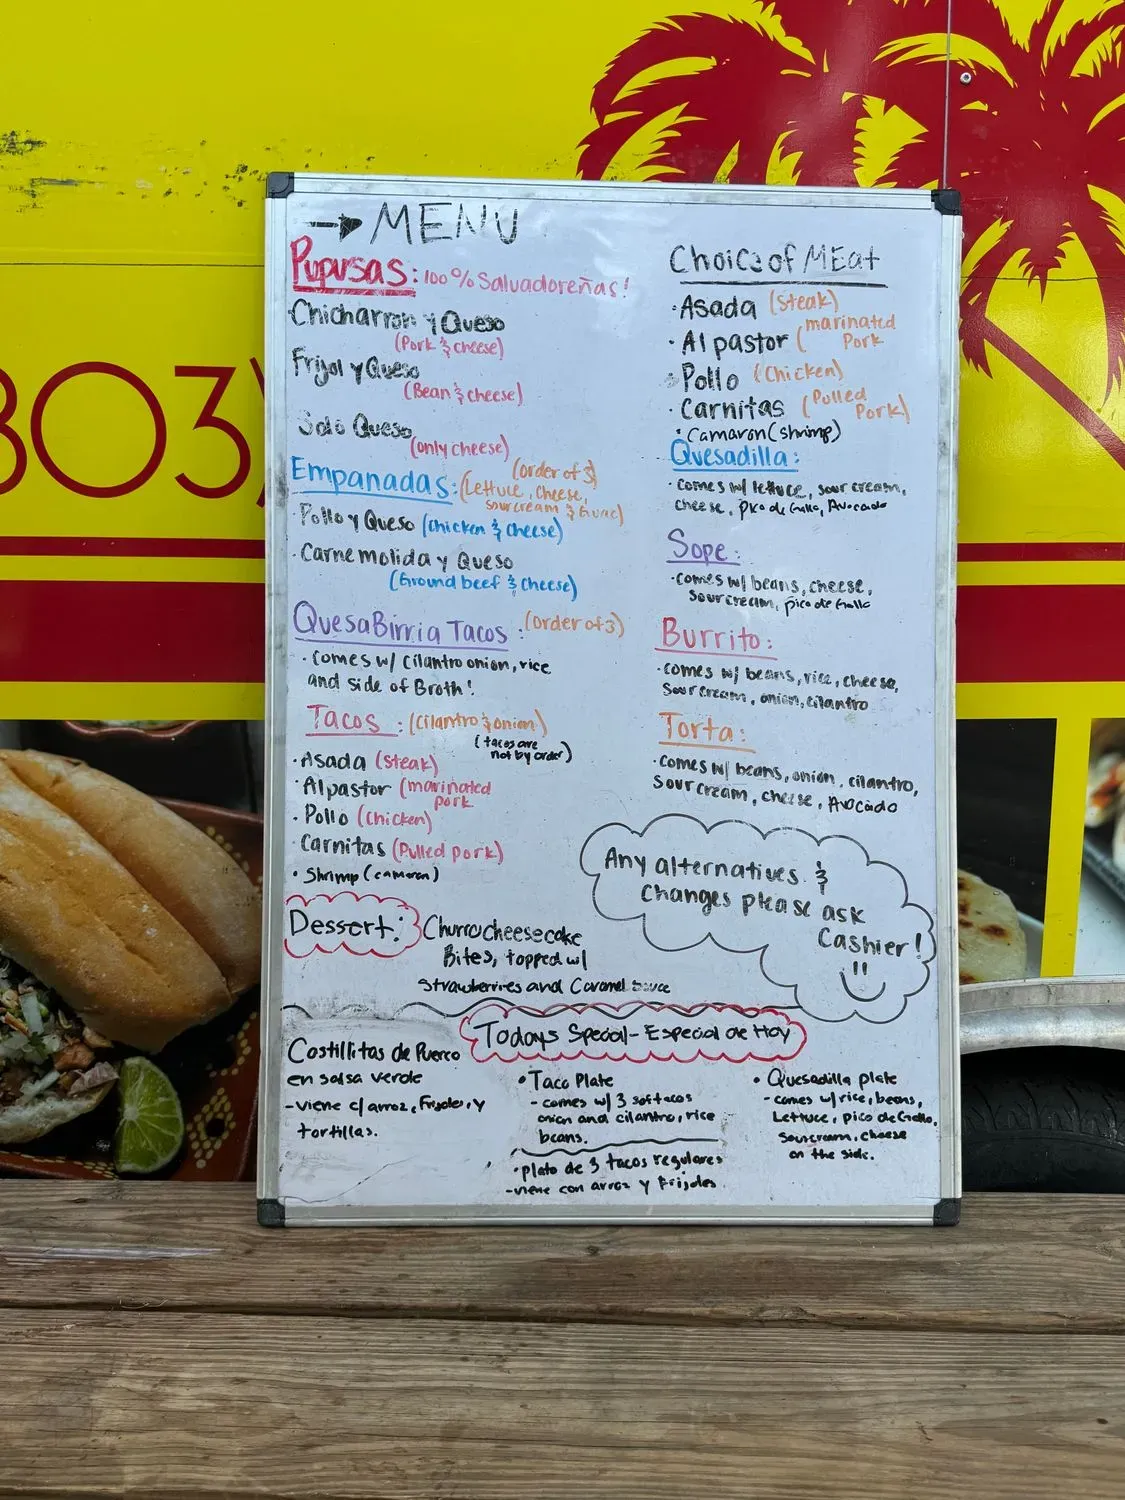 MENU
Pupusas: 100% Salvadoreñas!
Chicharron y Queso
(Pork & cheese)
Frijol y Queso
(Bean & cheese)
Solo Queso
(only cheese)
Empanadas: (order of 3)
(Lettuce, cheese,
sour cream & Guac)
· Pollo y Queso (chicken & cheese)
· Carne molida y Queso
(Ground beef & cheese)
QuesaBirria Tacos: (order of 3)
· comes w/ cilantro onion, rice
and side of Broth!
Tacos: (cilantro & onion)
(tacos are
not by order)
· Asada (steak)
· Al pastor (marinated
pork
· Pollo (chicken)
· Carnitas (Pulled pork)
· Shrimp (cameron)
Dessert: Churro cheesecake
Bites, topped w/
strawberries and Caramel sauce
Choice of MEat
· Asada (steak)
· Al pastor (marinated
Pork
· Pollo (Chicken)
· Carnitas (Pulled
Pork)
· Camaron (shrimp)
Quesadilla:
· comes w/ lettuce, sour cream,
cheese, pico de Gallo, Avocado
Sope:
· comes w/ beans, cheese,
sour cream, pico de Gallo
Burrito:
· comes w/ beans, rice, cheese,
sour cream, onion, cilantro
Torta:
· comes w/ beans, onion, cilantro,
sour cream, cheese, Avocado
Any alternatives &
changes please ask
Cashier!
Todays Special - Especial de Hoy
Costillitas de Puerco
en salsa verde
- viene c/ arroz, Frijoles, y
tortillas.
· Taco Plate
- comes w/ 3 soft tacos
onion and cilantro, rice
beans.
· plato de 3 tacos regulares
- viene con arroz y Frijoles
· Quesadilla plate
- comes w/ rice, beans,
Lettuce, pico de Gallo,
sour cream, cheese
on the side.
803)